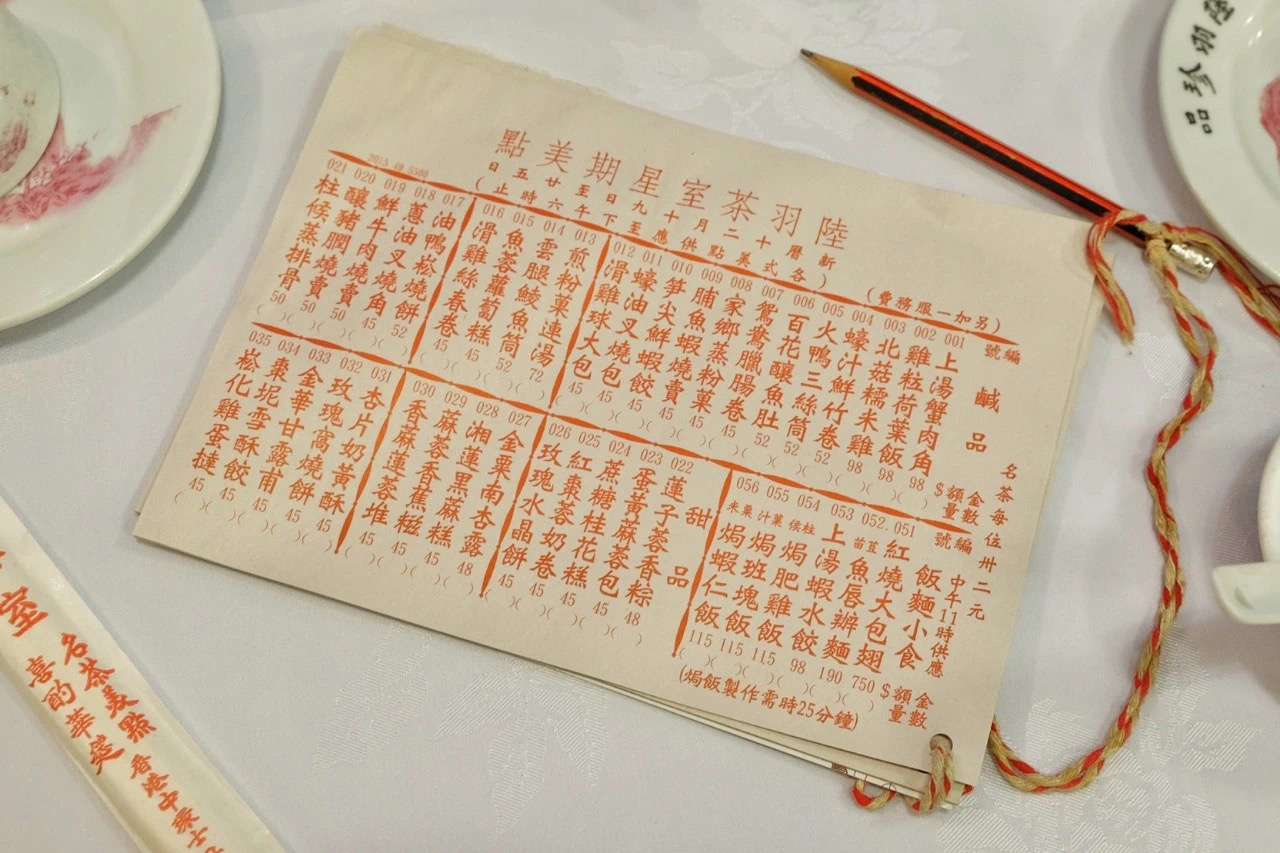 陸羽茶室星期美點
(新曆十二月十九日至廿五日
各式美點供應至下午六時止)
(另加一服務費)
2015 49 5500
名茶每位卅二元
編號 鹹品 $金額 數量
001 上湯蟹肉角 98 ( )
002 雞粒荷葉飯 98 ( )
003 北菇糯米雞 98 ( )
004 蠔汁鮮竹卷 52 ( )
005 火鴨三絲筒 52 ( )
006 百花釀魚肚 52 ( )
007 鴛鴦臘腸卷 45 ( )
008 家鄉蒸粉菓 45 ( )
009 脯魚蝦燒賣 45 ( )
010 筍尖鮮蝦餃 45 ( )
011 蠔油叉燒包 45 ( )
012 滑雞球大包 45 ( )
013 煎粉菓連湯 72 ( )
014 雲腿鯪魚筒 52 ( )
015 魚蓉蘿蔔糕 45 ( )
016 滑雞絲春卷 45 ( )
017 油鴨崧燒餅 52 ( )
018 蔥油叉燒角 45 ( )
019 鮮牛肉燒賣 50 ( )
020 釀豬膶燒賣 50 ( )
021 柱候蒸排骨 50 ( )
編號 飯麵小食 $金額 數量
中午11時供應
051 紅燒大包翅 750 ( )
052 苗荳魚唇辦麵 190 ( )
053 上湯蝦水餃 98 ( )
054 柱侯焗肥雞飯 115 ( )
055 菓汁焗班塊飯 115 ( )
056 粟米焗蝦仁飯 115 ( )
(焗飯製作需時25分鐘)
甜品
022 蓮子蓉香粽 48 ( )
023 蛋黃蔴蓉包 45 ( )
024 蔗糖桂花糕 45 ( )
025 紅棗蓉奶卷 45 ( )
026 玫瑰水晶餅 45 ( )
027 金粟南杏露 48 ( )
028 湘蓮黑蔴糕 45 ( )
029 蔴蓉香蕉糍 45 ( )
030 香蔴蓮蓉堆 45 ( )
031 杏片奶黃酥 45 ( )
032 玫瑰窩燒餅 45 ( )
033 全華甘露甫 45 ( )
034 棗坭雪酥餃 45 ( )
035 崧化雞蛋撻 45 ( )
陸羽珍品
室
名茶美點
喜酌華筵
香港中環士